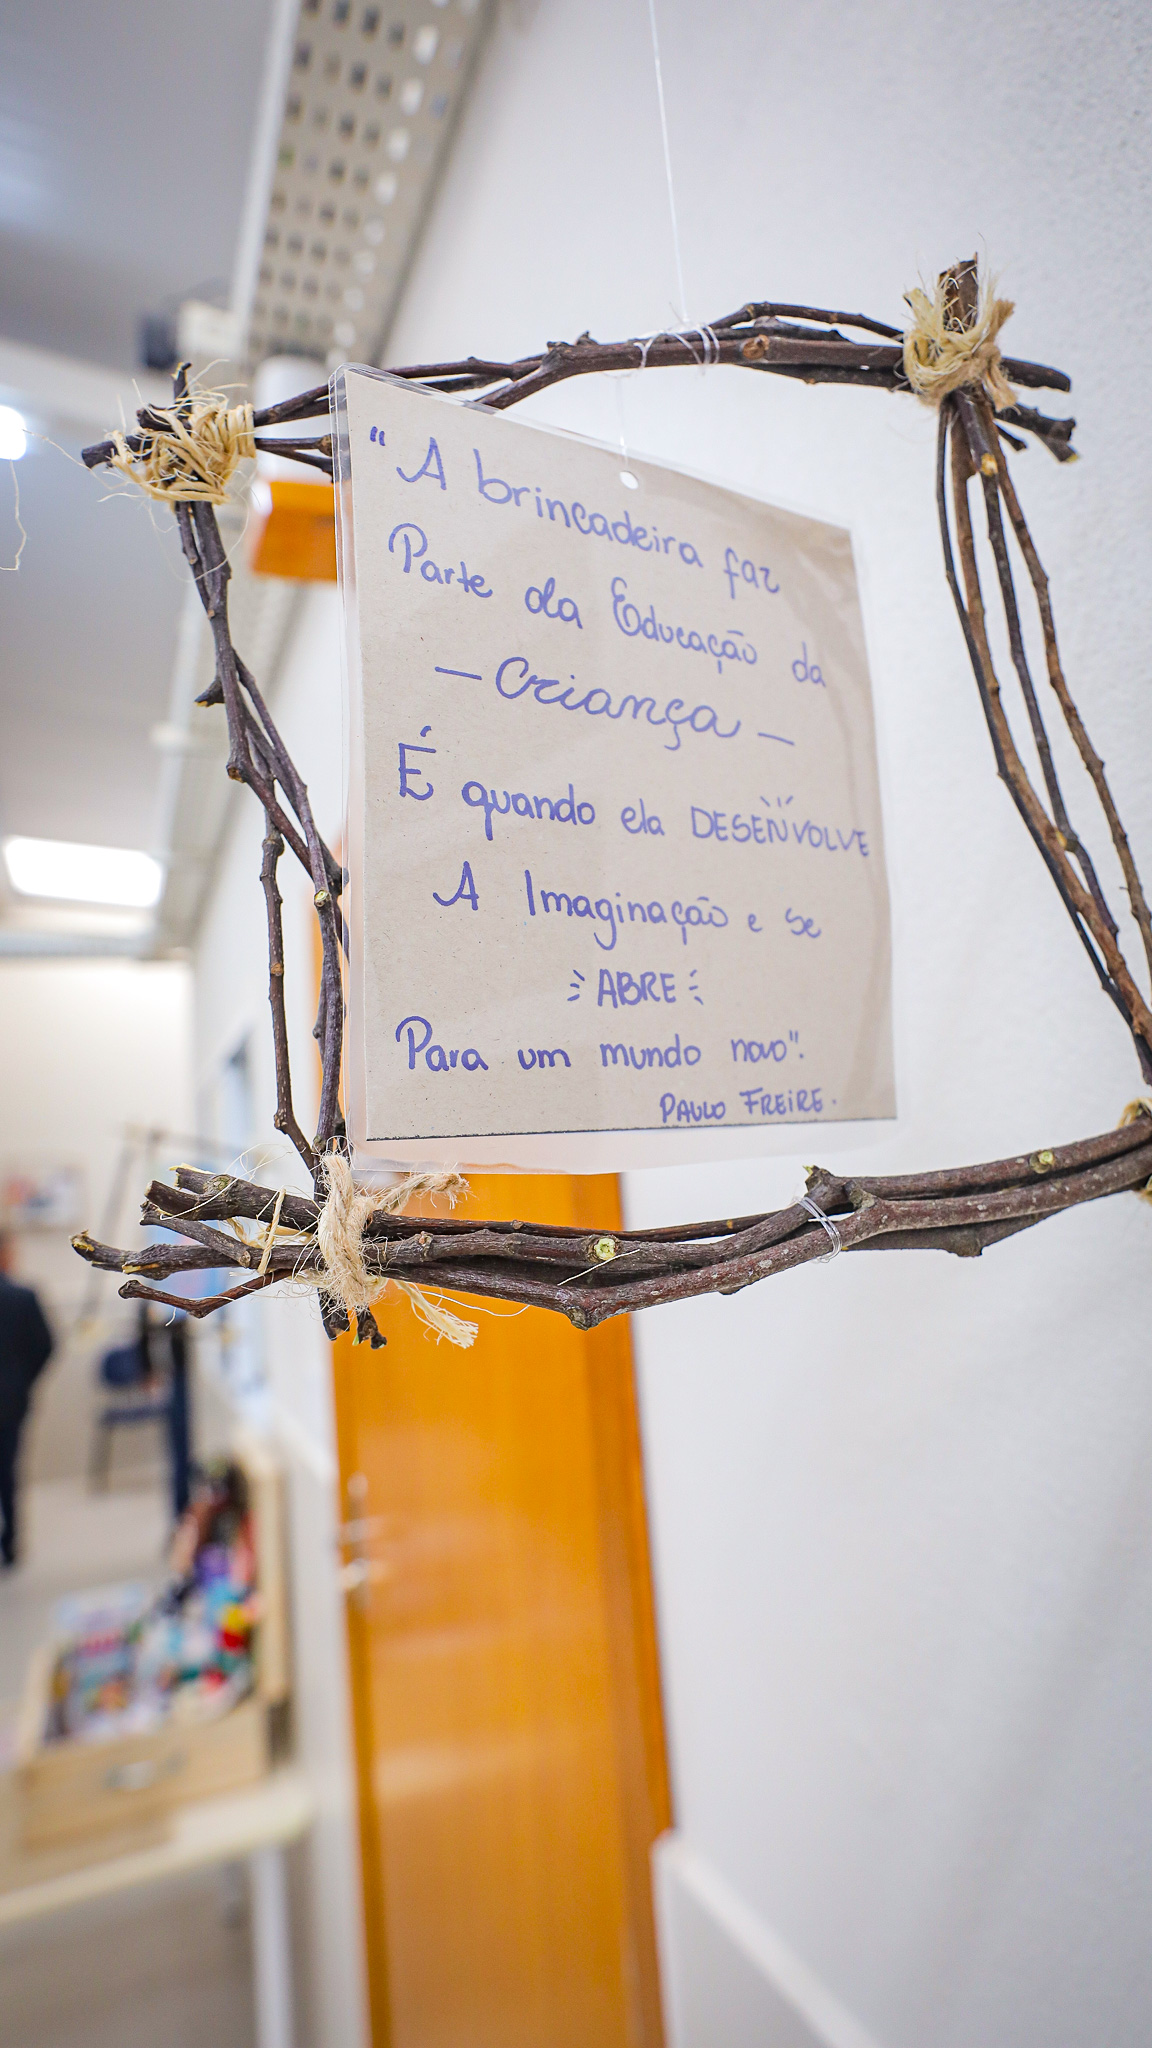 "A brincadeira faz
Parte da Educação da
— Criança —
É quando ela DESENVOLVE
A Imaginação e se
ABRE
Para um mundo novo".
PAULO FREIRE.